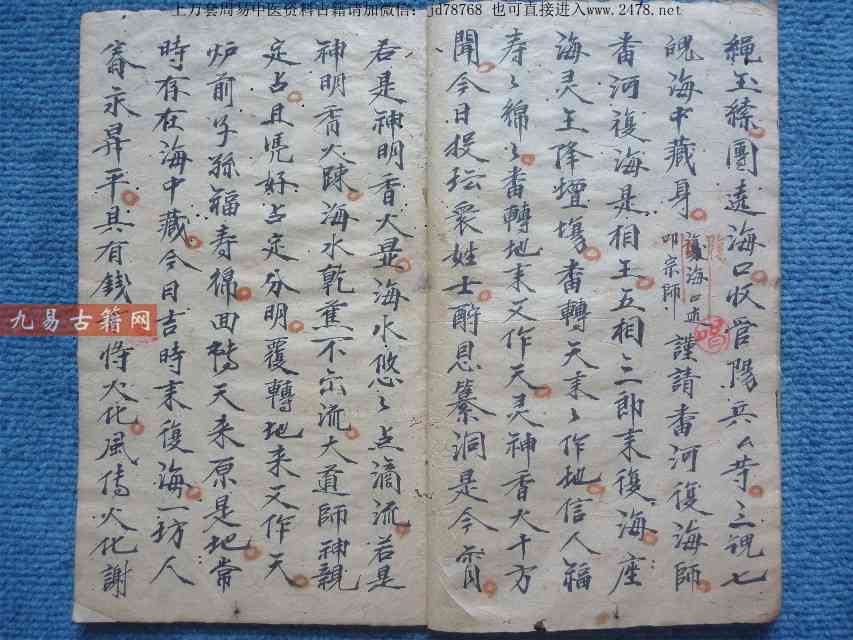 上万套周易中医资料古籍请加微信：jd78768 也可直接进入www.2478.net
繩玉縧團遶海口收管陽兵么等三魂七
魄海中藏身
復海口述
叩宗師
唱
謹請畨河復海師
畨河復海是相王五相三郎来復海座
海灵王降壇塲畨轉天来〻作地信人福
寿〻綿〻畨轉地来又作天灵神香火十方
聞今日投坛衆姓士酧恩纂洞是今宵
若是神明香火显海水悠〻点滴流若是
神明香火踈海水乾蕉不流大道師神親
定占且凭好占定分明覆轉地来又作天
炉前子孫福寿綿回轉天来原是地常
時存在海中藏今日吉時来復海一坊人
畜永昇平具有銭将火化風傳火化謝
九易古籍网